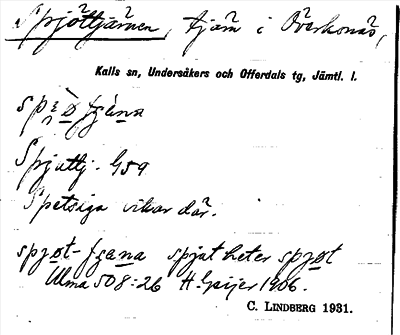 Spjöttjärnen, tjärn i Överkonäs,
Kalls sn, Undersåkers och Offerdals tg, Jämtl. l.
Spjuttj. G59
Spetsiga vikar där.
spjøt-fgana spjut heter spjøt
Ulma 508:26 H. Geijer 1906.
C. LINDBERG 1931.